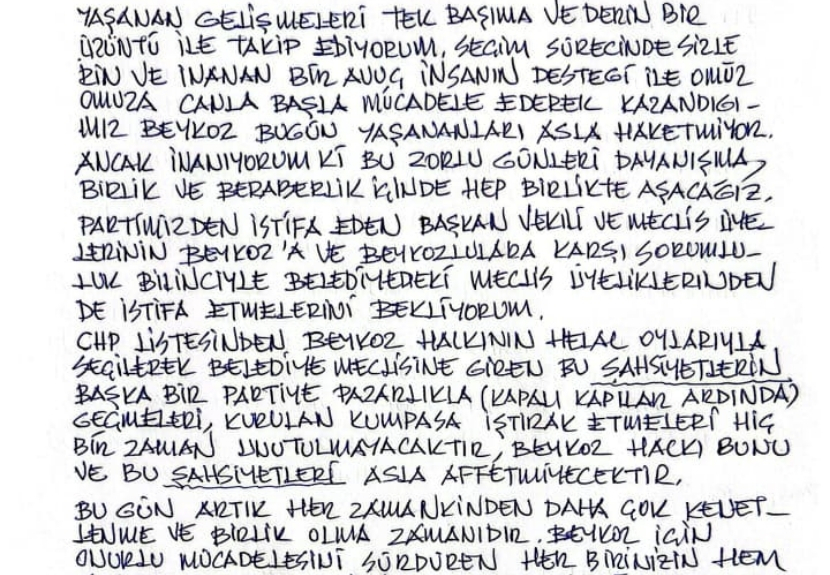 YAŞANAN GELİŞMELERİ TEK BAŞIMA VE DERİN BİR
ÜZÜNTÜ İLE TAKİP EDİYORUM. SEÇİM SÜRECİNDE SİZLE
RİN VE İNANAN BİR AVUÇ İNSANIN DESTEĞİ İLE OMUZ
OMUZA CANLA BAŞLA MÜCADELE EDEREK KAZANDIĞI-
MIZ BEYKOZ BUGÜN YAŞANANLARI ASLA HAKETMİYOR.
ANCAK İNANIYORUM Kİ BU ZORLU GÜNLERİ DAYANIŞMA,
BİRLİK VE BERABERLİK İÇİNDE HEP BİRLİKTE AŞACAĞIZ.
PARTİMİZDEN İSTİFA EDEN BAŞKAN VEKİLİ VE MECLİS ÜYE-
LERİNİN BEYKOZ'A VE BEYKOZLULARA KARŞI SORUMLU-
LUK BİLİNCİYLE BELEDİYEDEKİ MECLİS ÜYELİKLERİNDEN
DE İSTİFA ETMELERİNİ BEKLİYORUM.
CHP LİSTESİNDEN BEYKOZ HALKININ HELAL OYLARIYLA
SEÇİLEREK BELEDİYE MECLİSİNE GİREN BU ŞAHSİYETLERİN
BAŞKA BİR PARTİYE PAZARLIKLA (KAPALI KAPILAR ARDINDA)
GEÇMELERİ, KURULAN KUMPASA İŞTİRAK ETMELERİ HİÇ
BİR ZAMAN UNUTULMAYACAKTIR, BEYKOZ HALKI BUNU
VE BU ŞAHSİYETLERİ ASLA AFFETMİYECEKTİR.
BU GÜN ARTIK HER ZAMANKİNDEN DAHA ÇOK KENET-
LENME VE BİRLİK OLMA ZAMANIDIR. BEYKOZ İÇİN
ONURLU MÜCADELESİNİ SÜRDÜREN HER BİRİNİZİN HEM